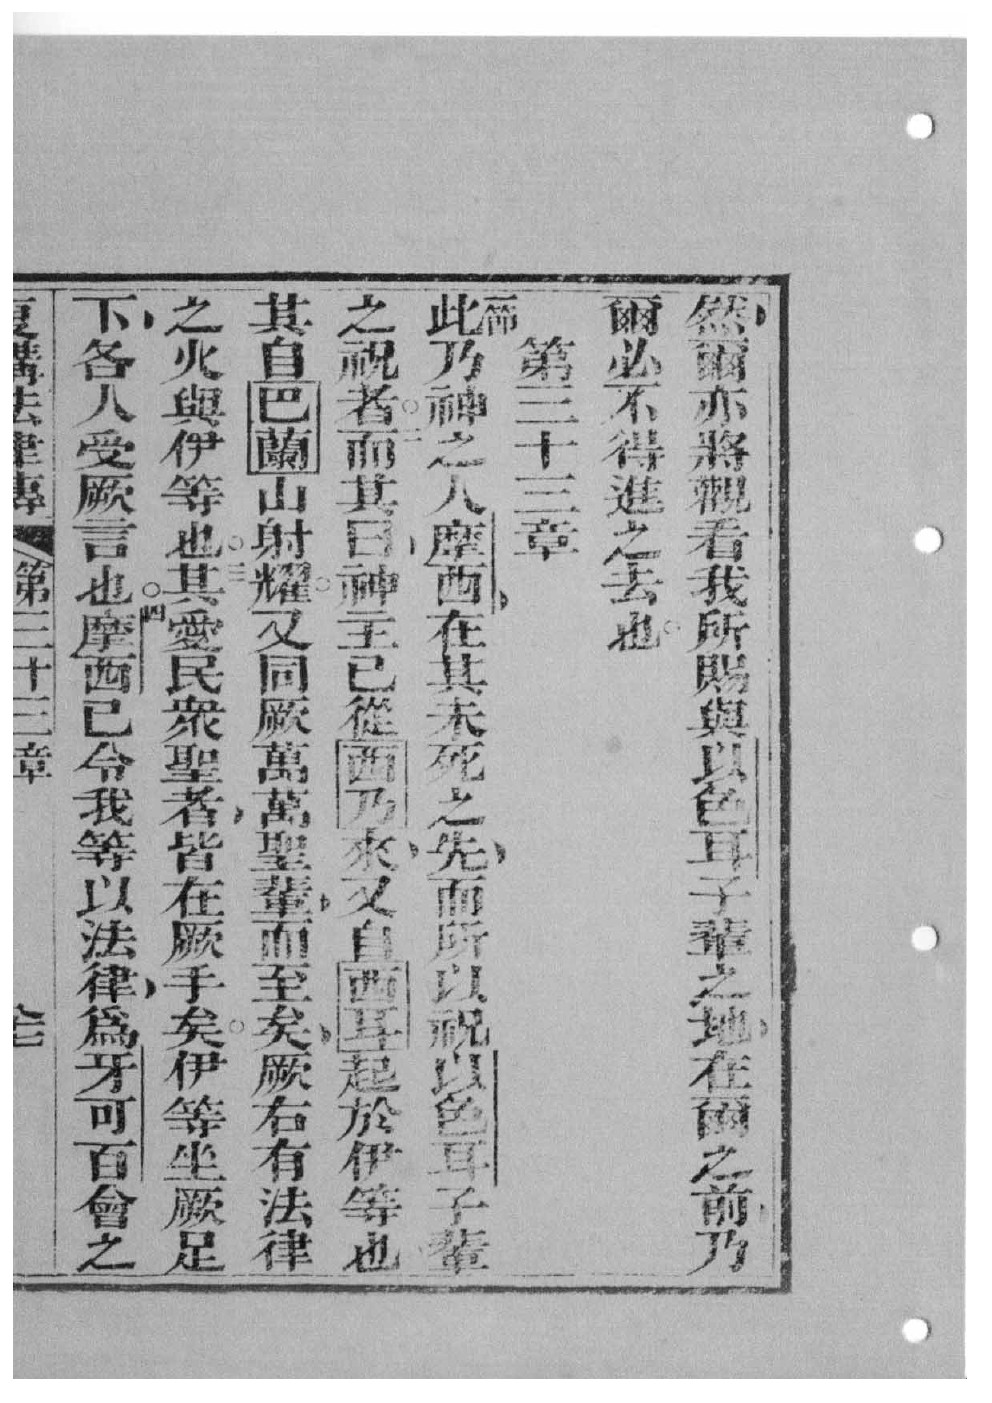 然爾亦將觀看我所賜與以色耳子輩之地在爾之前乃
爾必不得進之去也。
第三十三章
一節此乃神之人摩西在其未死之先而所以祝以色耳子輩
之祝者。二而其曰神主已從西乃來又自西耳起於伊等也
其自巴蘭山射耀。又同厥萬萬聖輩而至矣厥右有法律
之火與伊等也。三其愛民衆聖者皆在厥手矣。伊等坐厥足
下各人受厥言也。四摩西已令我等以法律爲牙可百會之
復講法律傳 第三十三章